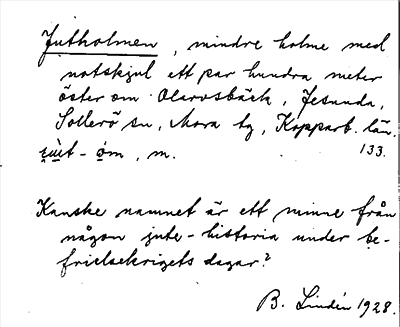 Jutholmen, mindre holme med
notskjul ett par hundra meter
öster om Olarvsbäck, Gesunda,
Sollerö sn, Mora tg, Kopparb. län.
133.
-öm, m.
Kanske namnet är ett minne från
någon jute-historia under be-
frielsekrigets dagar?
B. Lindén 1928.